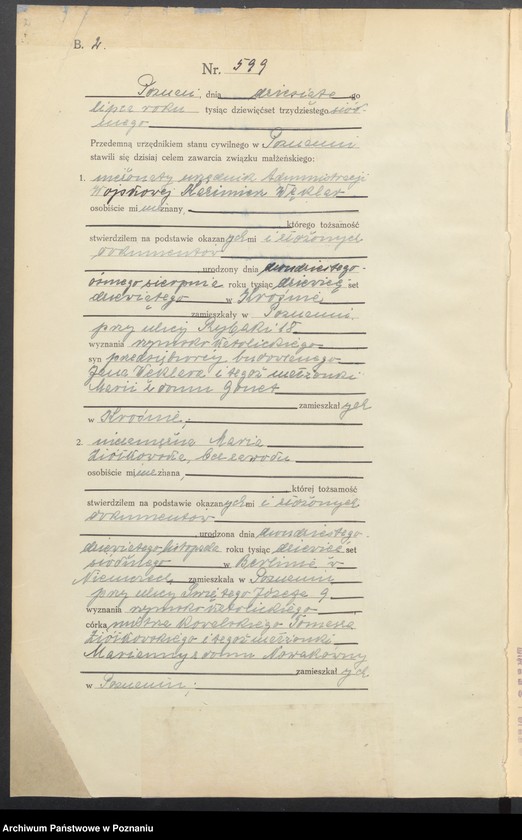 B. 2.
Nr. 599
Poznań, dnia dziesiątego
lipca roku tysiąc dziewięćset trzydziestego siód-
mego
Przedemną urzędnikiem stanu cywilnego w Poznaniu
stawili się dzisiaj celem zawarcia związku małżeńskiego:
1. nieżonaty urzędnik Administracji
Wojskowej Kazimierz Wekler
osobiście mi nieznany,
którego tożsamość
stwierdziłem na podstawie okazanych mi i złożonych
dokumentów
urodzony dnia dwudziestego-
ósmego sierpnia roku tysiąc dziewięćset
dziewiątego w Krośnie,
zamieszkały w Poznaniu
przy ulicy Rybaki 18
wyznania rzymsko katolickiego
syn przedsiębiorcy budowlanego
Jana Weklera i tegoż małżonki
Marii z domu
zamieszkałych
w Krośnie;
2. niezamężna Maria
Ziółkowska, bez zawodu
osobiście mi nieznana,
której tożsamość
stwierdziłem na podstawie okazanych mi i złożonych
dokumentów
urodzona dnia dwudziestego-
dziewiątego listopada roku tysiąc dziewięćset
siódmego w Berlinie w
Niemczech zamieszkała w Poznaniu
przy ulicy Świętego Józefa 9
wyznania rzymsko katolickiego
córka mistrza kowalskiego Tomasza
Ziółkowskiego i tegoż małżonki
Marianny z domu Nowakówny
zamieszkałych
w Poznaniu;
Archiwum Państwowe w Poznaniu